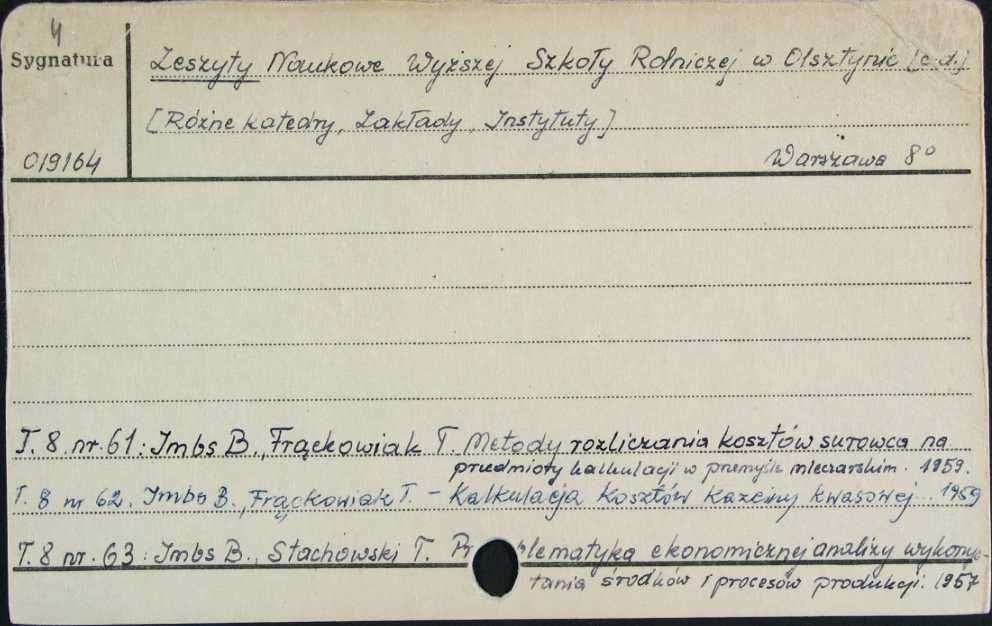 4
Sygnatura
Zeszyty Naukowe Wyższej Szkoły Rolniczej w Olsztynie [c.d.]
[Różne katedry, Zakłady, Instytuty]
019164
Warszawa 8°
T. 8 nr. 61: Imbs B., Frąckowiak T. Metody rozliczania kosztów surowca na
przedmioty kalkulacji w przemyśle mleczarskim. 1959.
T. 8 nr 62. Imbs B., Frąckowiak T. - Kalkulacja kosztów kazeiny kwasowej. 1959
T. 8 nr. 63: Imbs B., Stachowski T. Pr blematyka ekonomicznej analizy wykorzy-
tania środków i procesów produkcji. 1957